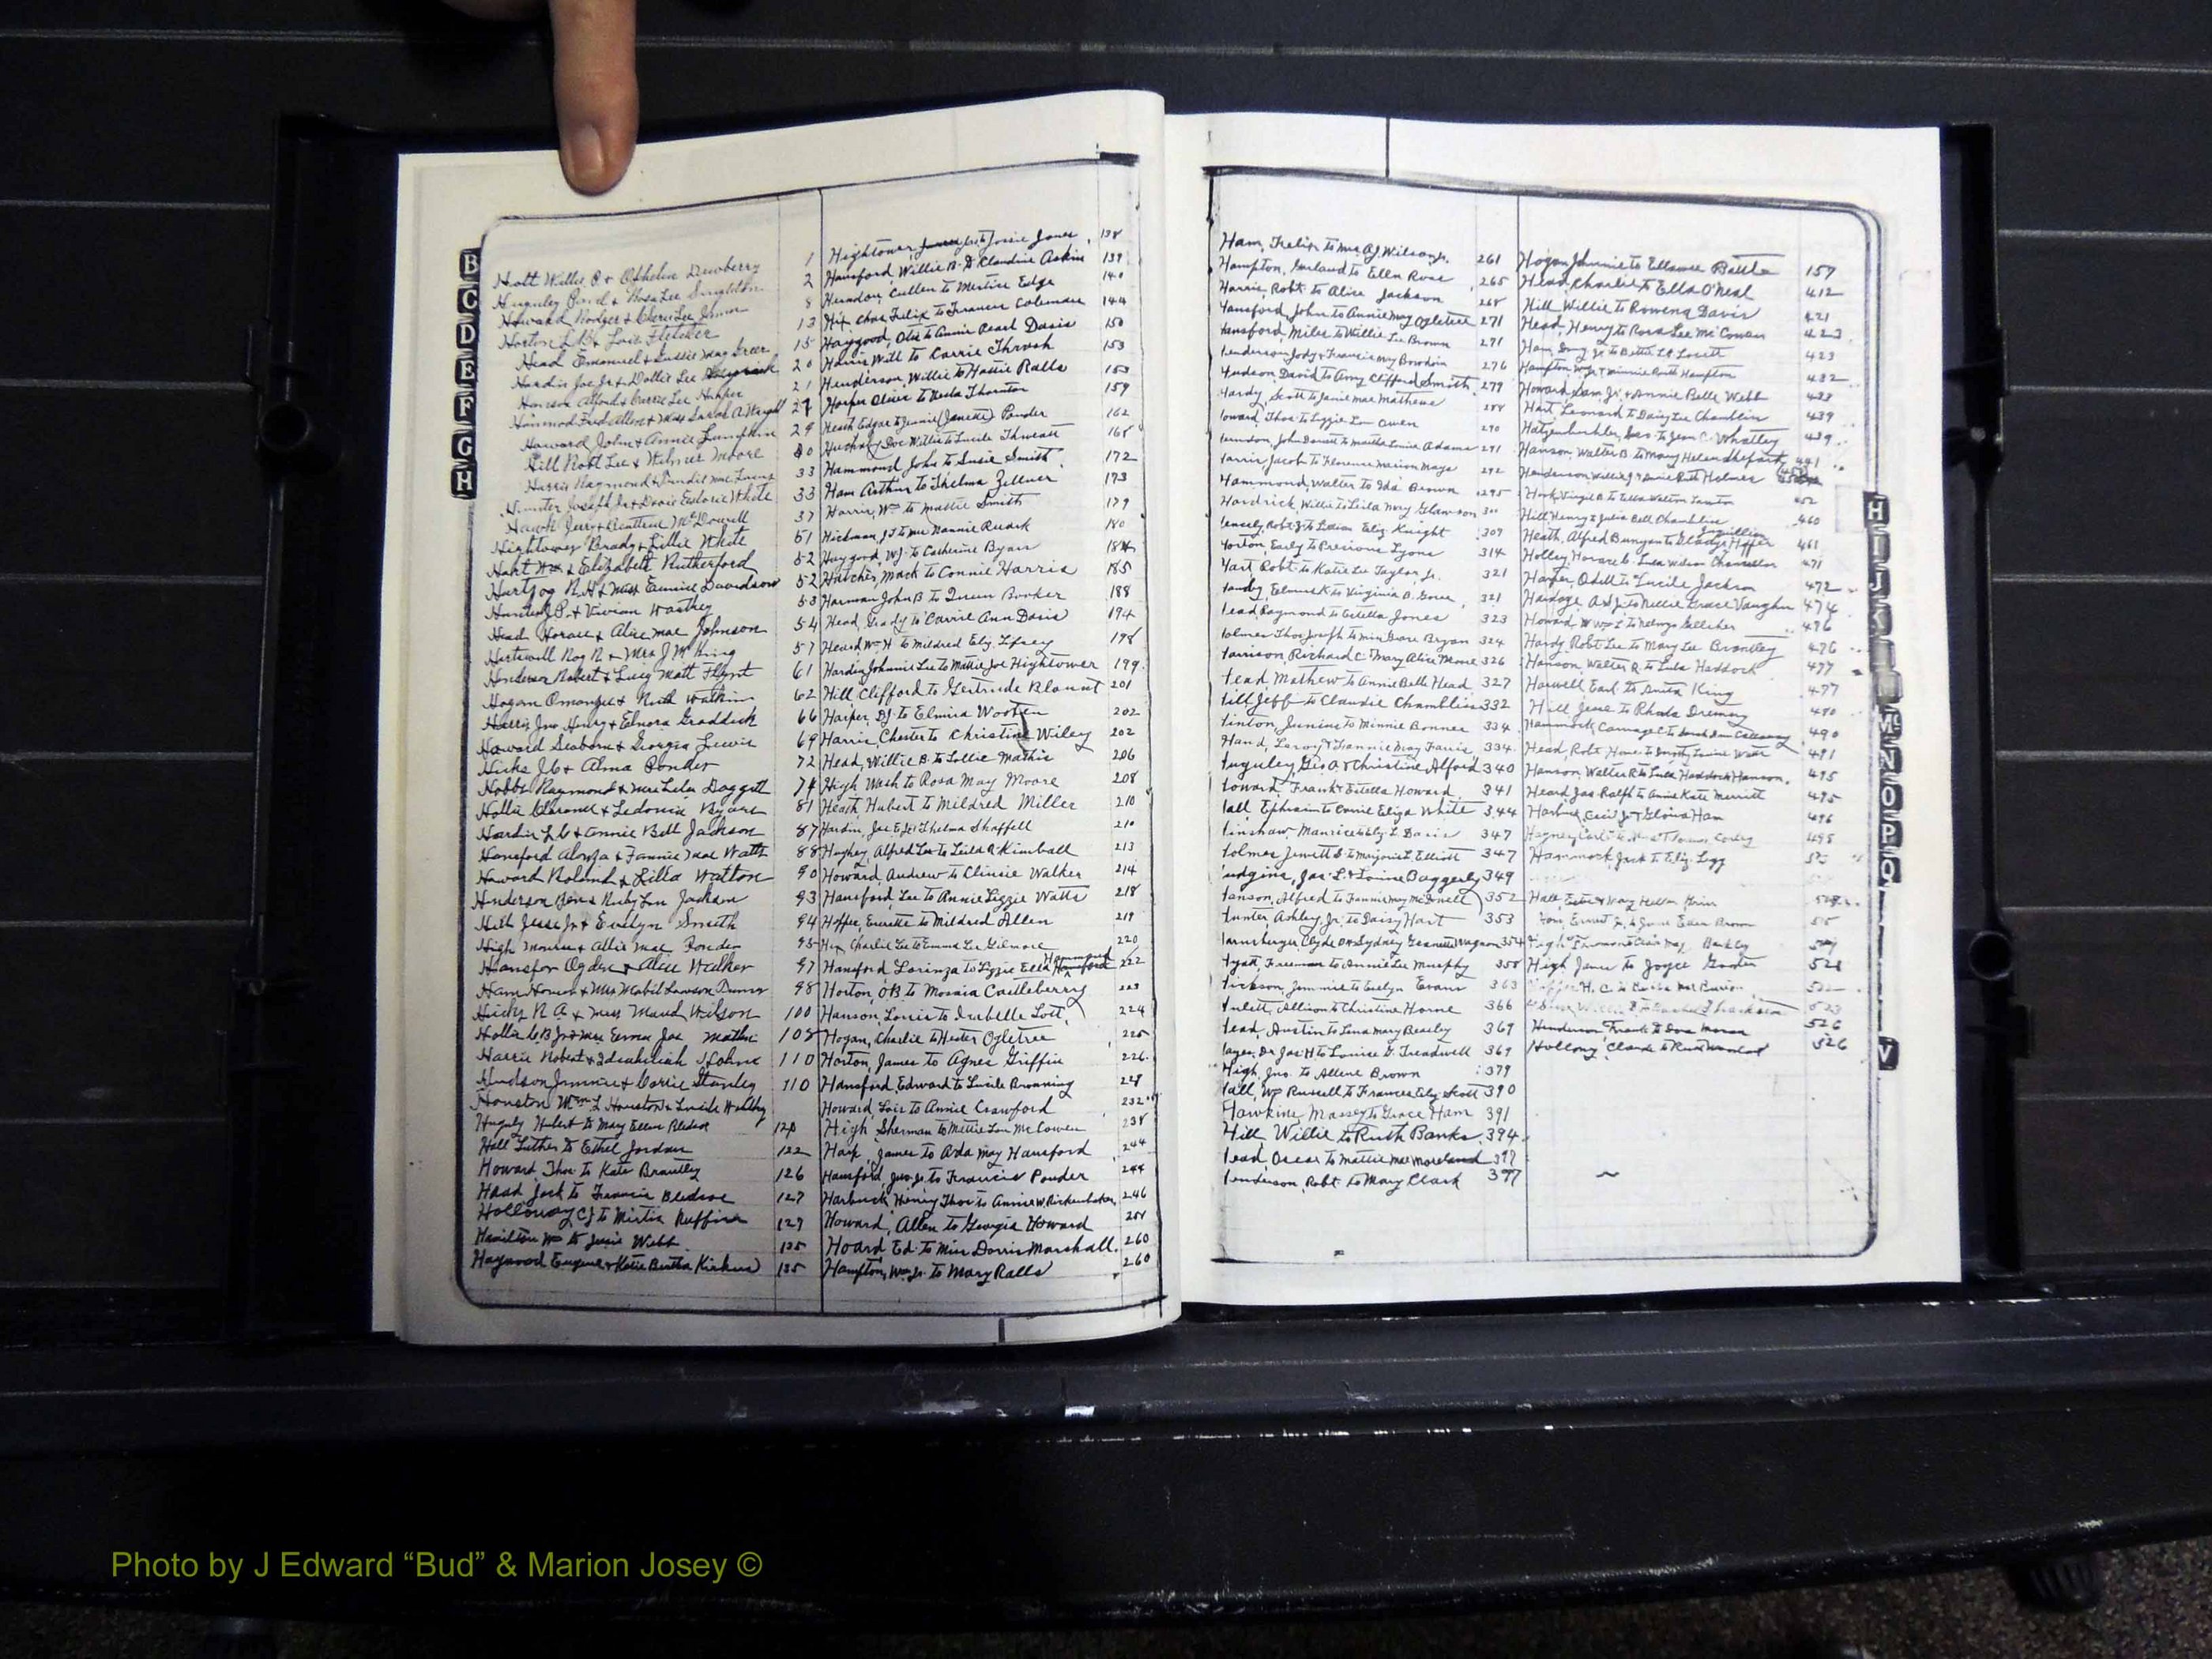 B
C
D
E
F
G
H
Holt Willie P. & Ophelia Dewberry 1
Huguley Pearl & Rosa Lee Singleton 2
Howard Rodger & Cleri Lee 8
Horton L.B & Lois Fletcher 13
Head Emanuel & Gussie May Greer 15
Hardin Joe Jr & Dollie Lee 20
Hanson Alford & Carrie Lee Harper 21
Hammod Fred Allen & Miss Sarah A. Wright 27
Howard John & Annie Lumpkin 29
Hill Robt Lee & Wilmer Moore 30
Harris Raymond & Mae 33
Hunter Joseph Jr & Doris Estorie White 33
Hawk Jerry & McDowell 37
Hightower Brady & Lillie White 51
Hart Wm & Elizabeth Rutherford 52
Hartzog R.H & Miss Eunice Davidson 52
Hunter J.P. & Vivian Worthy 53
Head Horace & Alice Mae Johnson 54
Hartwell Roy R & Mrs J W King 57
Henderson Robert & Lucy Matt Flynt 61
Hogan & Ruth Watkins 62
Harris Jno Henry & Elnora Graddick 66
Howard Seaborn & Georgia Lewis 69
Hicks J.C & Alma Ponder 72
Hobbs Raymond & Mrs Lela Doggett 74
Hollis Clarence & Ledonia Byars 81
Hardin L.C & Annie Bell Jackson 87
Hansford Alonza & Fannie Mae Watts 88
Howard Roland & Lilla Watson 90
Henderson Ben & Ruby Lou Jackson 93
Hill Jesse Jr & Evelyn Smith 94
High Monroe & Allie Mae Ponder 95
Hansfor Ogden & Alice Walker 97
Ham Homer & Mrs Mabel Lawson Dumas 98
Hicks R. A. & Miss Maud Wilson 100
Hollis C B Jr & Miss Emma Joe Mathis 108
Harris Robert & 110
Hudson Jimmie & Carrie Stanley 110
Houston Wm L Houston & Lucile Worthy
Huguly Hubert to May Ellen Bledsoe 120
Hall Luther to Ethel Jordan 122
Howard Thos. to Kate Brantley 126
Head Jack to Francis Bledsoe 127
Holloway CJ to Mirtis Ruffin 129
Hamilton Wm to Josie Webb 135
Haywood Eugene & Katie Bertha 135
Hightower, to Jossie Jones 138
Hansford, Willie B. to Claudine Askin 139
Herndon, Cullen to Mertice Edge 140
Hix, Chas Felix to Frances Coleman 144
Haygood, Otis to Annie Pearl Davis 150
Harris, Will to Carrie Thrash 153
Henderson, Willie to Hattie Ralls 153
Harper Oliver to Thornton 159
Heath Edgar to Jennie (Janette) Ponder 162
Doc Willie to Lucile Thweatt 168
Hammond John to Susie Smith 172
Ham Arthur to Thelma Zellner 173
Harris, Wm to Mattie Smith 179
Hickman, JT to Mrs Nannie Rusk 180
Haygood, W.J. to Catherine Byars 184
Hatcher, Mack to Connie Harris 185
Harman John B to Queen Booker 188
Head, Grady to Carrie Ann Davis 194
Heard Wm H to Mildred Eliz. 198
Hardin Johnnie Lee to Mattie Joe Hightower 199
Hill, Clifford to Gertrude Blount 201
Harper, D.J. to Elmira Wooten 202
Harris, Chester to Christine Wiley 202
Head, Willie B. to Lollie Mathis 206
High Wash to Rosa May Moore 208
Heath, Hubert to Mildred Miller 210
Hardin, Joe E. Jr. Thelma Shaffell 210
Hughey, Alfred Lee to Leila R. Kimball 213
Howard, Andrew to Clinsie Walker 214
Hansford, Lee to Annie Lizzie Watts 218
Hoffer, Everette to Mildred Allen 219
Hix, Charlie Lee to Emma Lee Gilmore 220
Hansford Lorinza to Lizzie Ella Hammond 222
Horton, O.B to Mosaia Castleberry 223
Hanson, Louis to Isabelle Lott 224
Hogan, Charlie to Hester Ogletree 225
Horton, James to Agnes Griffin 226
Hansford, Edward to Lucile Browning 228
Howard, Lois to Annie Crawford 232
High Sherman to Mittie Lou McCowen 238
Harp, James to Arda May Hansford 244
Hansford, Jno. Jr. to Francis Ponder 244
Harbuck, Henry Thos to Annie W. Rickenbaker 246
Howard, Allen to Georgia Howard 258
Hoard Ed. to Miss Dorris Marshall. 260
Hampton, Wm Jr. to Mary Ralls 260
Ham, Felix to Mrs. A.J. Wilson Jr. 261
Hampton, Garland to Ellen Rose 265
Harris, Robt. to Alice Jackson 268
Hansford, John to Annie May Ogletree 271
ansford, Miles to Willie Lee Brown 271
enderson Jody & Francis May Bowdoin 276
Hudson, David to Amy Clifford Smith 279
Hardy, Scott to Janie Mae Mathews 288
oward, Thos. to Lizzie Lou Owen 290
erndon, John to Martha Louise Adams 291
arris Jacob to Florence Marion Mays 292
Hammond, Walter to Ida Brown 295
Hardrick, Willie to Leila Mary Glawson 300
ensely, Robt. to Lillian Eliz. Knight 309
orton, Early to Precious Lyons 314
Hart Robt. to Katie Lee Taylor, Jr. 321
andy, Edmund K to Virginia B. Goree 321
ead, Raymond to Estella Jones 323
olmes Thos Joseph to Miss Grace Bryan 324
arrison, Richard C. Mary Alice Moore 326
ead, Mathew to Annie Belle Head 327
ill, Jeff to Claudie Chambliss 332
inton, Junius to Minnie Bonner 334
Hand, Leroy & Fannie May Farris 334
uguley, Geo. A & Christine Alford 340
oward, Frank & Estella Howard 341
all, Ephraim to Connie Eliza White 344
inshaw, Maurice to Ely L. Davis 347
olmes Jewett S. to Marjorie L. Elliott 347
udgins, Jas. L. & Louise Baggerly 349
anson, Alfred to Fannie May McDowell 352
unter, Ashley, Jr. to Daisy Hart 353
arnsberger, Clyde D & Sydney Jeanette Wagnon 354
yatt, Freeman to Annie Lee Murphy 358
ickson, Jimmie to Evelyn Evans 363
ulett, Allison to Christine Horne 366
ead, Austin to Lena Mary Beasley 369
ayes, Dr. Jas. H to Louise G. Treadwell 369
High, Jno. to Allene Brown 379
all, Wm Russell to Frances Eliz. Scott 390
Hawkins, Massey to Grace Ham 391
Hill Willie to Ruth Banks 394
ead, Oscar to Mattie Mae Moreland 397
enderson, Robt. to Mary Clark 397
Hogan Johnnie to Battle 157
Head, Charlie to Ella O'Neal 412
Hill Willie to Rowena Davis 421
Head, Henry to Rosa Lee McCowen 423
Ham, Jr. to Bettie Lovett 423
Hampton & Minnie Ruth Hampton 432
Howard, Sam Jr. & Annie Belle Webb 433
Hart, Leonard to Daisy Lee Chamblin 439
Geo. to Jean C. Whatley 439
Hanson, Walter B. to Mary Helen Shepard 441
Henderson Willie J & Annie Ruth Holmes
Hawk, Virgil to Ella Walton 452
Hill Henry to Julia Bell Chambliss 460
Heath, Alfred Bunyan to Gladys 461
Holley, Horace to Lula Wilson 471
Harper, Odell to Lucile Jackson 472
Hardage, A.S Jr. to Nellie Grace Vaughn 474
Howard W Wm L to Gallaher 476
Hardy Robt. Lee to Mary Lee Brantley 476
Hanson Walter R. to Lula Haddock 477
Harwell, Earl to Anita King 477
Hill, Jesse to Rhoda 490
Hammock to Callaway 490
Head, Robt. to 491
Hanson, Walter R to Lula Haddock Hanson 495
Heard Jas. Ralph to Annie Kate Merritt 495
Harbuck, Cecil Jr. & Gloria Ham 496
498
Hammock, Jack to Eliz. Legg
Hall, & Mary Helen
Brown 515
Barkley
High James to Joyce 521
522
523
Henderson Frank to Moran 526
Holloway, Claude to 526
H
I
J
Mc
N
O
P
Q
V
Photo by J Edward “Bud” & Marion Josey ©